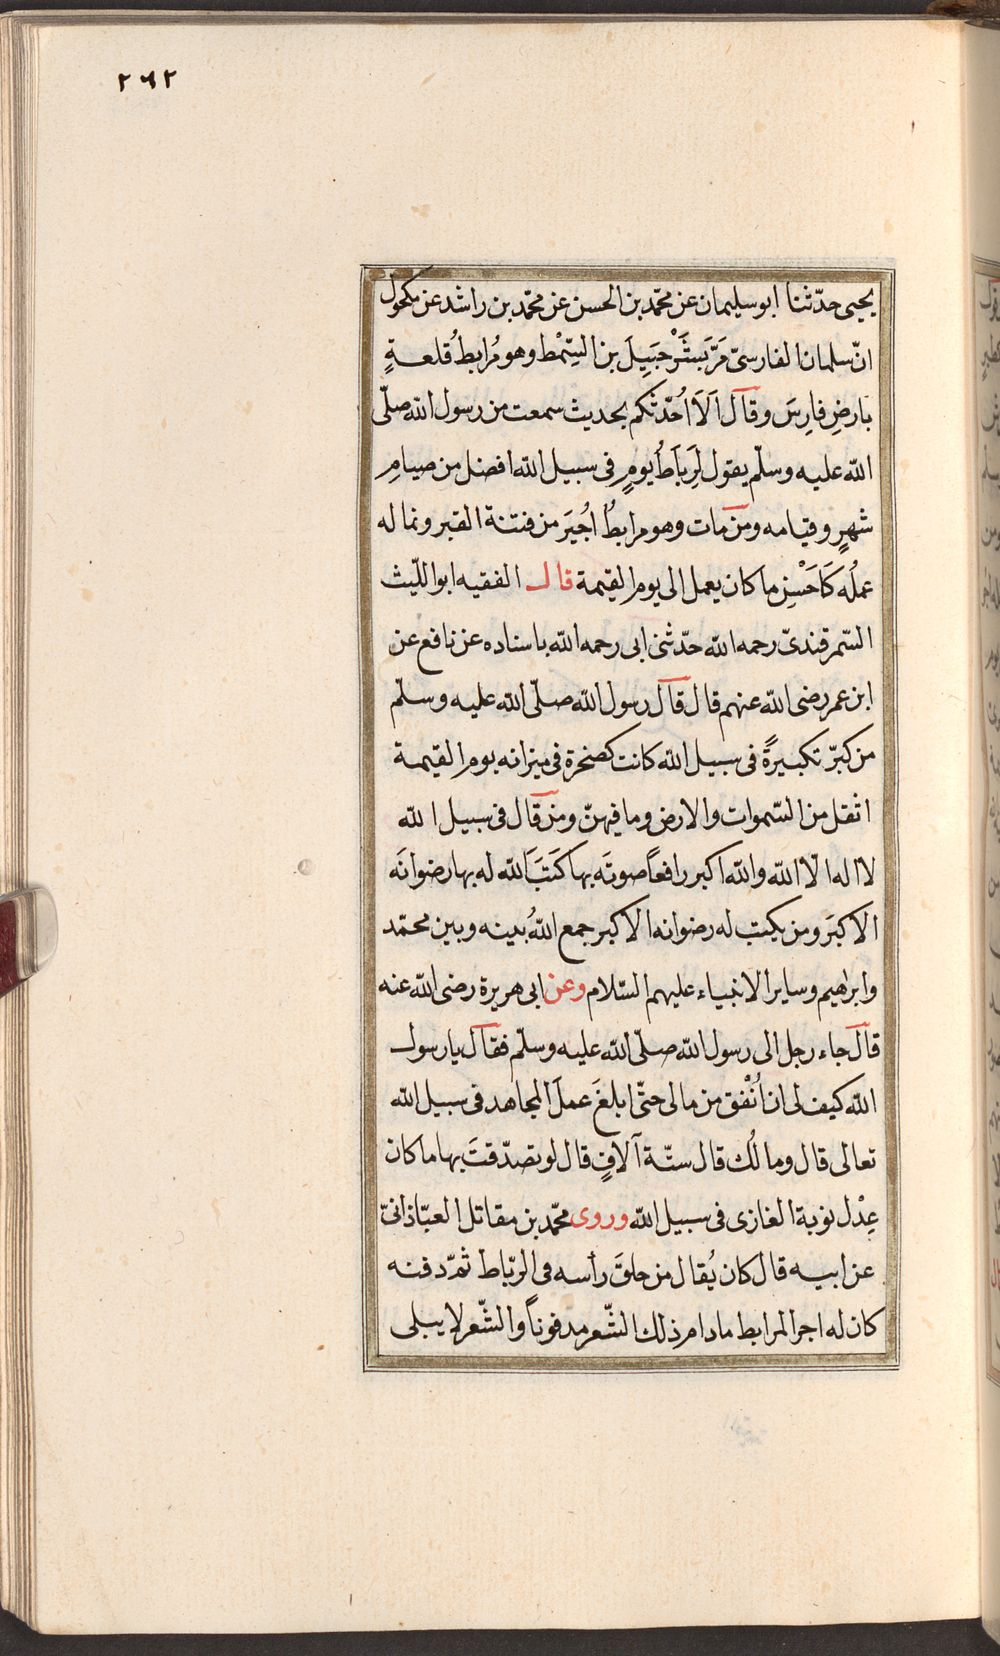 ٢٦٢
يحيى حدّثنا ابو سليمان عن محمّد بن الحسن عن محمّد بن راشد عن مكحول
انّ سلمان الفارسىّ مَرَّ بِشَرْحَبِيلَ بن السِّمْط وهو مُرابطُ قلعةٍ
بارضِ فارِسَ وقال اَلَا اُحَدّثكم بحديث سمعت من رسول الله صلّى
الله عليه وسلّم يقول لَرِباطُ يومٍ فى سبيل الله افضل من صيامِ
شهرٍ وقيامه ومن مات وهو مرابطٌ اُجيرَ من فتنة القبر ونما له
عملُه كَاَحْسَنِ ما كان يعمل الى يوم القيمة قال الفقيه ابو اللّيث
السّمرقندىّ رحمه الله حدّثنى ابى رحمه الله باسناده عن نافع عن
ابن عمر رضى الله عنهم قال قال رسول الله صلّى الله عليه وسلّم
من كبّر تكبيرةً فى سبيل الله كانت كصخرة فى ميزانه يوم القيمة
اثقل من السّموات والارض وما فيهنّ ومن قال فى سبيل الله
لا اله الّا الله والله اكبر رافعًا صوتَه بها كَتَبَ الله له بها رضوانَه
الاكبَر ومن يكتب له رضوانه الاكبر جمع اللهُ بينه وبين محمّد
وابرهيم وساير الانبياء عليهم السّلام وعن ابى هريرة رضى الله عنه
قال جاء رجل الى رسول الله صلّى الله عليه وسلّم فقال يا رسول
الله كيف لى ان اُنْفق من مالى حتّى ابلغَ عملَ المجاهد فى سبيل الله
تعالى قال وما لُك قال ستّة آلافٍ قال لو تصدّقتَ بها ما كان
عِدْل نوبة الغازى فى سبيل الله وروى محمّد بن مقاتل العبّاذانىّ
عن ابيه قال كان يُقال من حلقَ رأسه فى الرّباط ثمّ دفنه
كان له اجر المرابط مادام ذلك الشّعر مدفونًا والشّعر لا يبلى